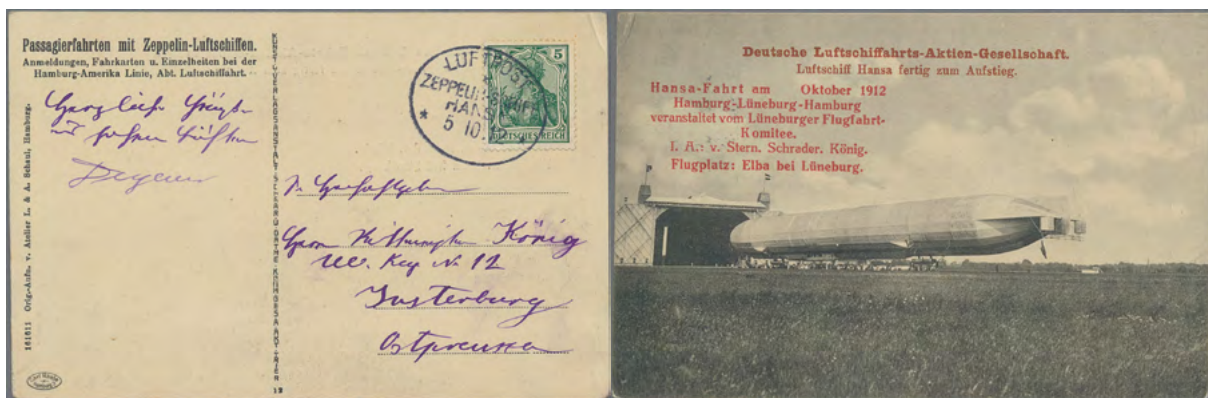 Passagierfahrten mit Zeppelin-Luftschiffen.
Anmeldungen, Fahrkarten u. Einzelheiten bei der
Hamburg-Amerika Linie, Abt. Luftschiffahrt.
Herzliche Grüße
Degener
161611 Orig.-Aufn. v. Atelier L. & A. Schaul, Hamburg.
LUFTPOST
ZEPPELINSCHIFF
HANSA
5 10.12
5
DEUTSCHES REICH
Herrn Rittmeister König
Ul. Reg N 12
Insterburg
Ostpreussen
Deutsche Luftschiffahrts-Aktien-Gesellschaft.
Luftschiff Hansa fertig zum Aufstieg.
Hansa-Fahrt am Oktober 1912
Hamburg-Lüneburg-Hamburg
veranstaltet vom Lüneburger Flugfahrt-
Komitee.
I. A.: v. Stern. Schrader. König.
Flugplatz: Elba bei Lüneburg.